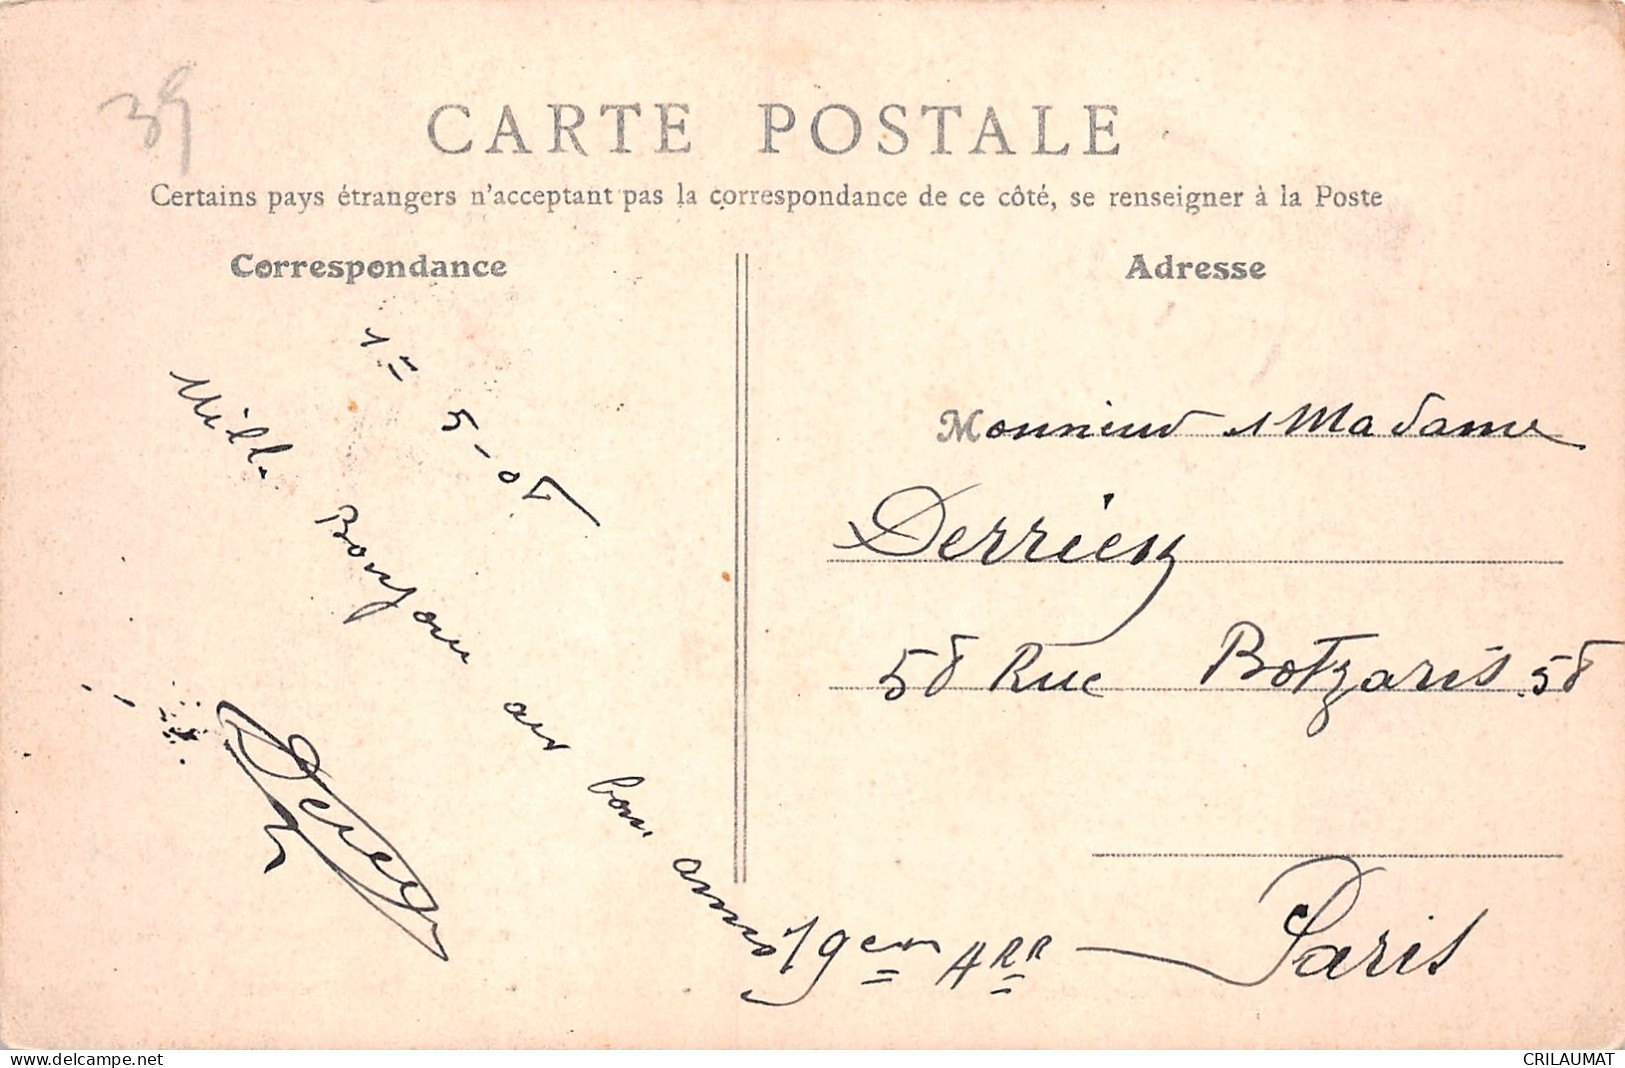 39
CARTE POSTALE
Certains pays étrangers n'acceptant pas la correspondance de ce côté, se renseigner à la Poste
Correspondance
Adresse
1er 5-05
Mille Bonjour aux bons amis
Monsieur & Madame
Derrien
58 Rue Botzaris 58
19em ARR Paris
www.delcampe.net
CRILAUMAT